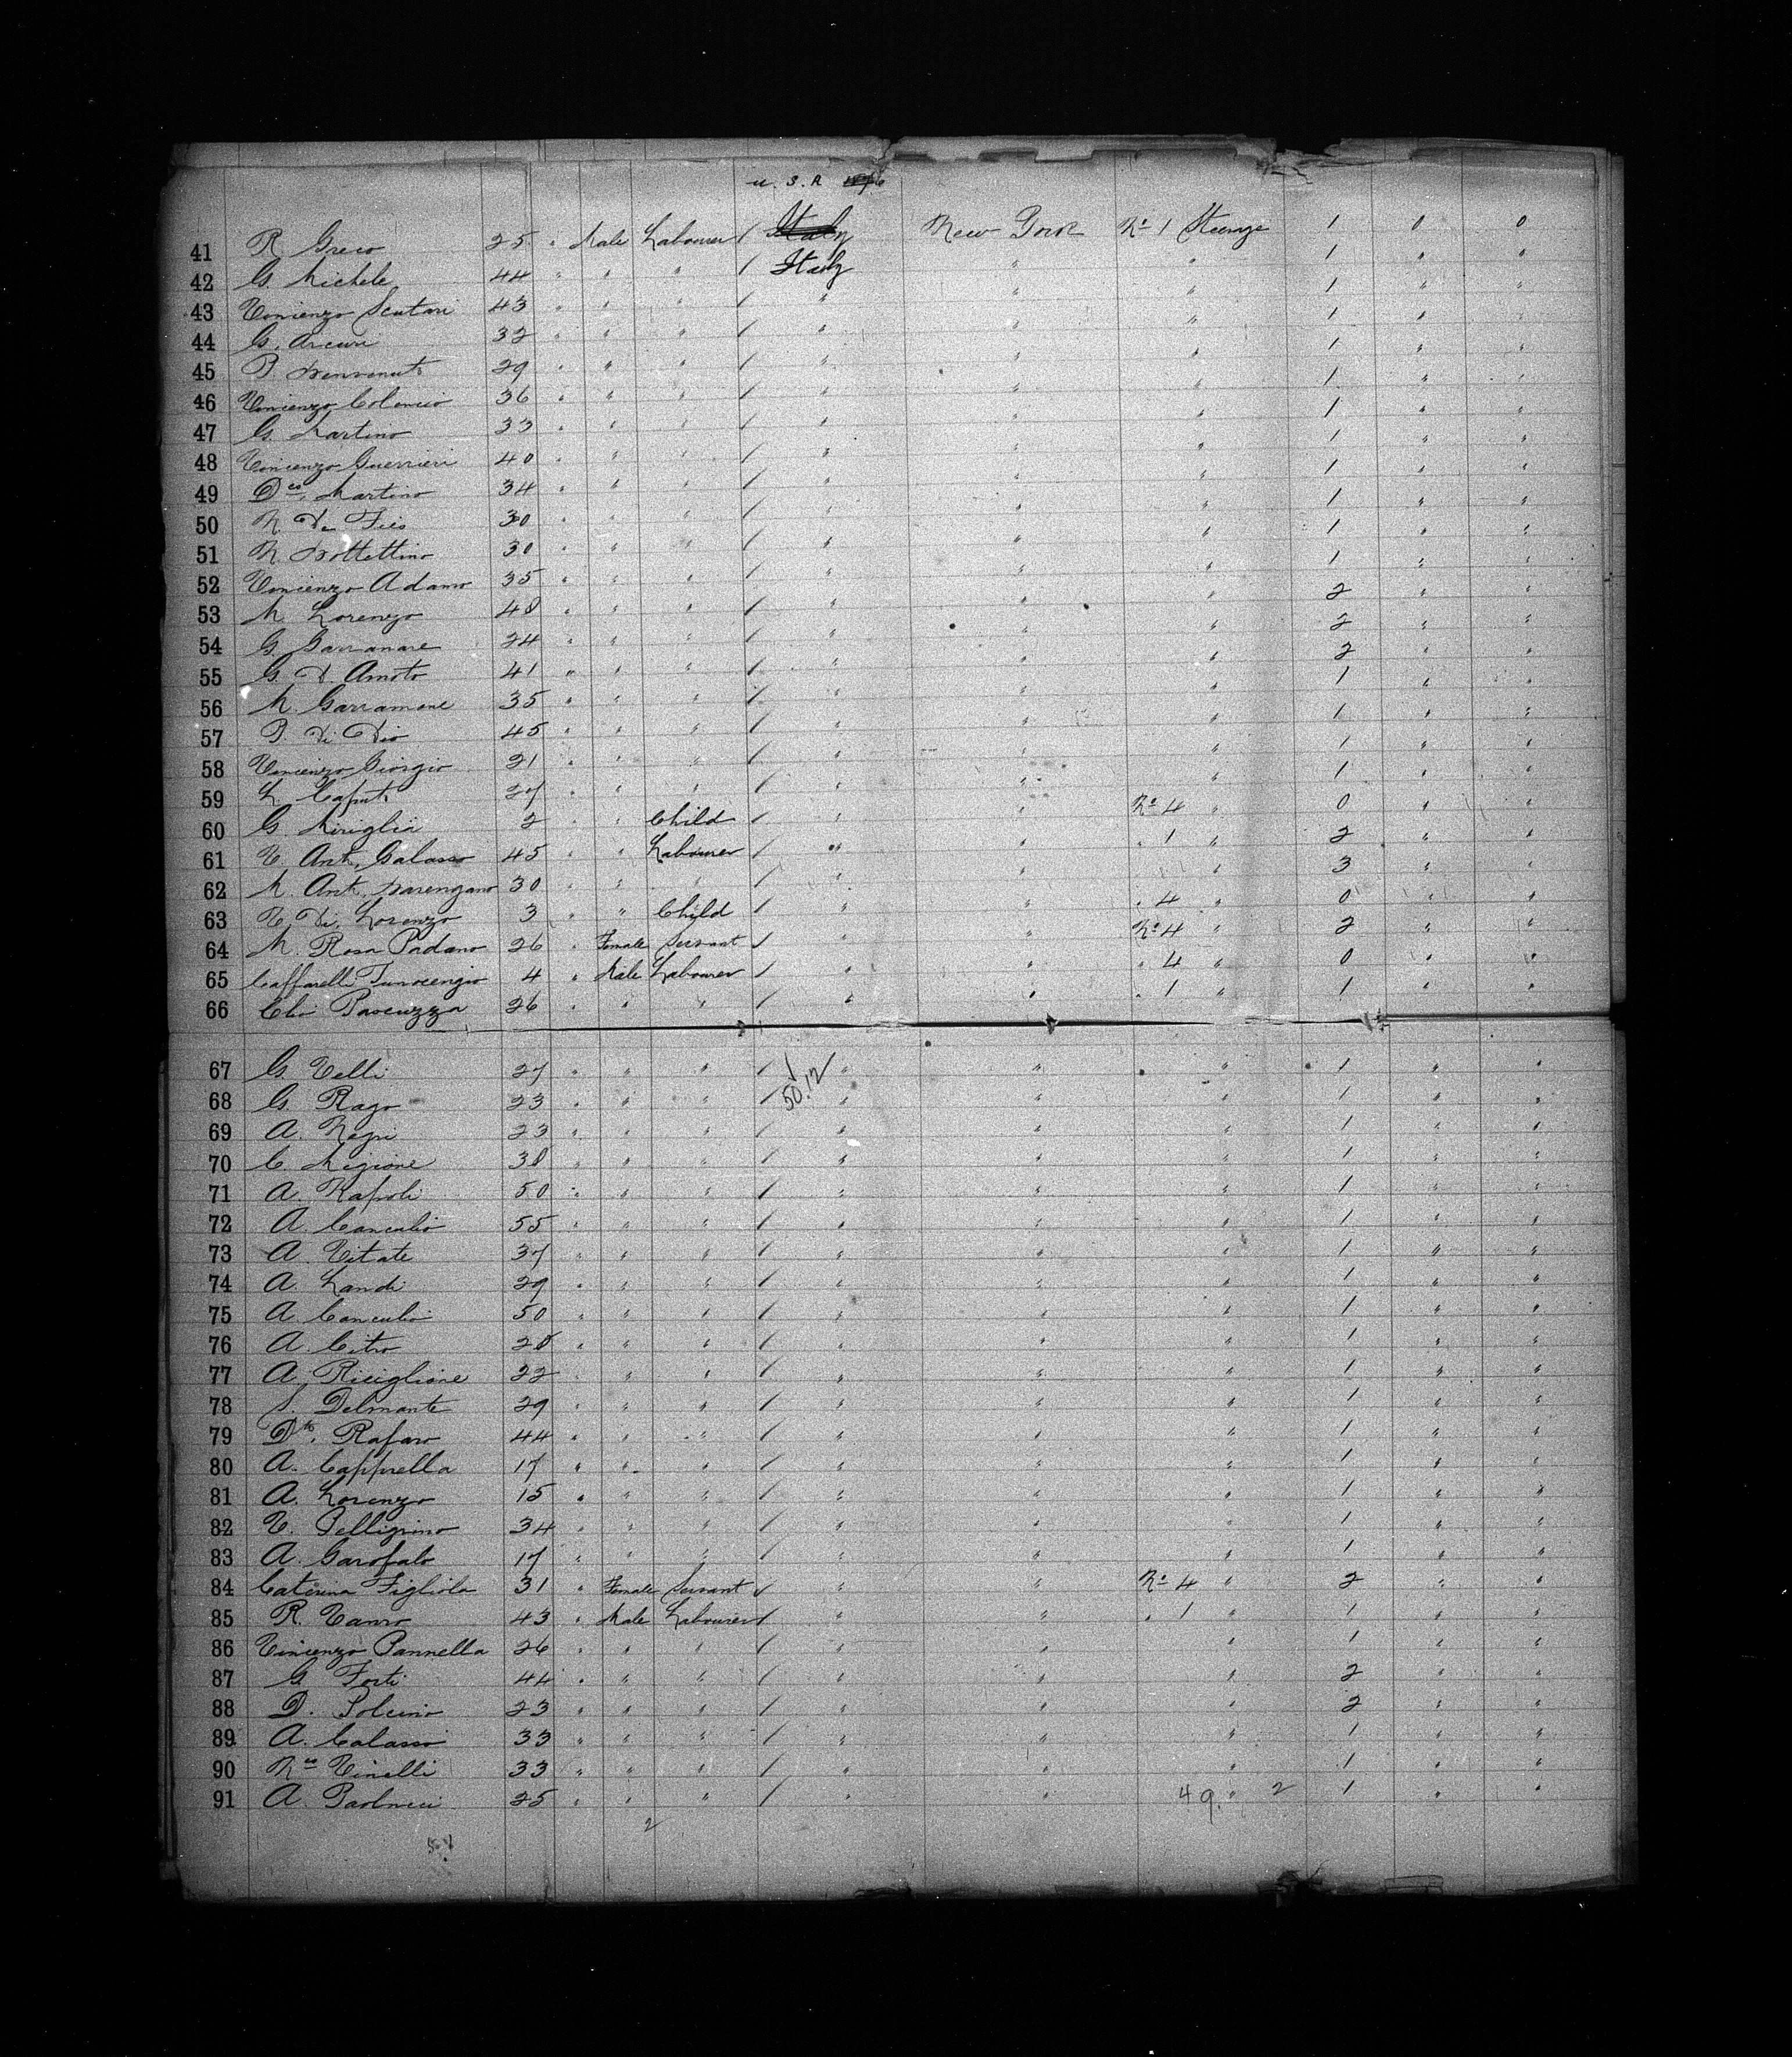 U. S. A
41 R Greco 25 " Male Labourer / Italy New York No 1 Steerage 1 0 0
42 G. Michele 44 " " " / Italy " " 1 " "
43 Vincenzo Scutari 43 " " " / " " " 1 " "
44 G. Arcuri 32 " " " / " " " 1 " "
45 P. Benvenuti 29 " " " / " " " 1 " "
46 Vincenzo Colencio 36 " " " / " " " 1 " "
47 G. Martino 33 " " " / " " " 1 " "
48 Vincenzo Guerrieri 40 " " " / " " " 1 " "
49 Dco. Martino 34 " " " / " " " 1 " "
50 N. De 30 " " " / " " " 1 " "
51 N. Bottettino 30 " " " / " " " 1 " "
52 Vincenzo Adamo 35 " " " / " " " 1 " "
53 M. Lorenzo 48 " " " / " " " 2 " "
54 G. 24 " " " / " " " 2 " "
55 G. D. Amoto 41 " " " / " " " 2 " "
56 M. Garramone 35 " " " / " " " 1 " "
57 P. Di Dio 45 " " " / " " " 1 " "
58 Vincenzo Giorgio 21 " " " / " " " 1 " "
59 L. Caputi 27 " " " / " " " 1 " "
60 G. Miriglia 2 " " Child / " " No 4 " 0 " "
61 V. Ant. Galasso 45 " " Labourer / " " " 1 " 2 " "
62 M. Ant. 30 " " " / " " " 3 " "
63 V. Di Lorenzo 3 " " Child / " " " 4 " 0 " "
64 M. Rosa Padano 26 " Female Servant / " " No 4 " 2 " "
65 Caffarelli 4 " Male Labourer / " " " 4 " 0 " "
66 26 " " " / " " " 1 " 1 " "
67 G. Velli 27 " " " / " " " 1 " "
50.12
68 G. Rago 23 " " " / " " " 1 " "
69 A. Negri 23 " " " / " " " 1 " "
70 C. Migione 38 " " " / " " " 1 " "
71 A. Napoli 50 " " " / " " " 1 " "
72 A. Canculio 55 " " " / " " " 1 " "
73 A. Vitate 37 " " " / " " " 1 " "
74 A. Landi 29 " " " / " " " 1 " "
75 A. Canculio 50 " " " / " " " 1 " "
76 A. Citro 28 " " " / " " " 1 " "
77 A. Riciglione 22 " " " / " " " 1 " "
78 S. Delmonte 29 " " " / " " " 1 " "
79 Rafaro 44 " " " / " " " 1 " "
80 A. Cappella 17 " " " / " " " 1 " "
81 A. Lorenzo 15 " " " / " " " 1 " "
82 V. Pelligrino 34 " " " / " " " 1 " "
83 A. Garofalo 17 " " " / " " " 1 " "
84 Caterina Figliola 31 " Female Servant / " " No 4 " 2 " "
85 R. 43 " Male Labourer / " " " 1 " 1 " "
86 Vincenzo Pannella 26 " " " / " " " 1 " "
87 G Forti 44 " " " / " " " 2 " "
88 D. Polcino 23 " " " / " " " 2 " "
89 A. Calasso 33 " " " / " " " 1 " "
90 Vinelli 33 " " " / " " " 1 " "
91 A. Paolucci 25 " " " / " " 49. " 2 1 " "
2